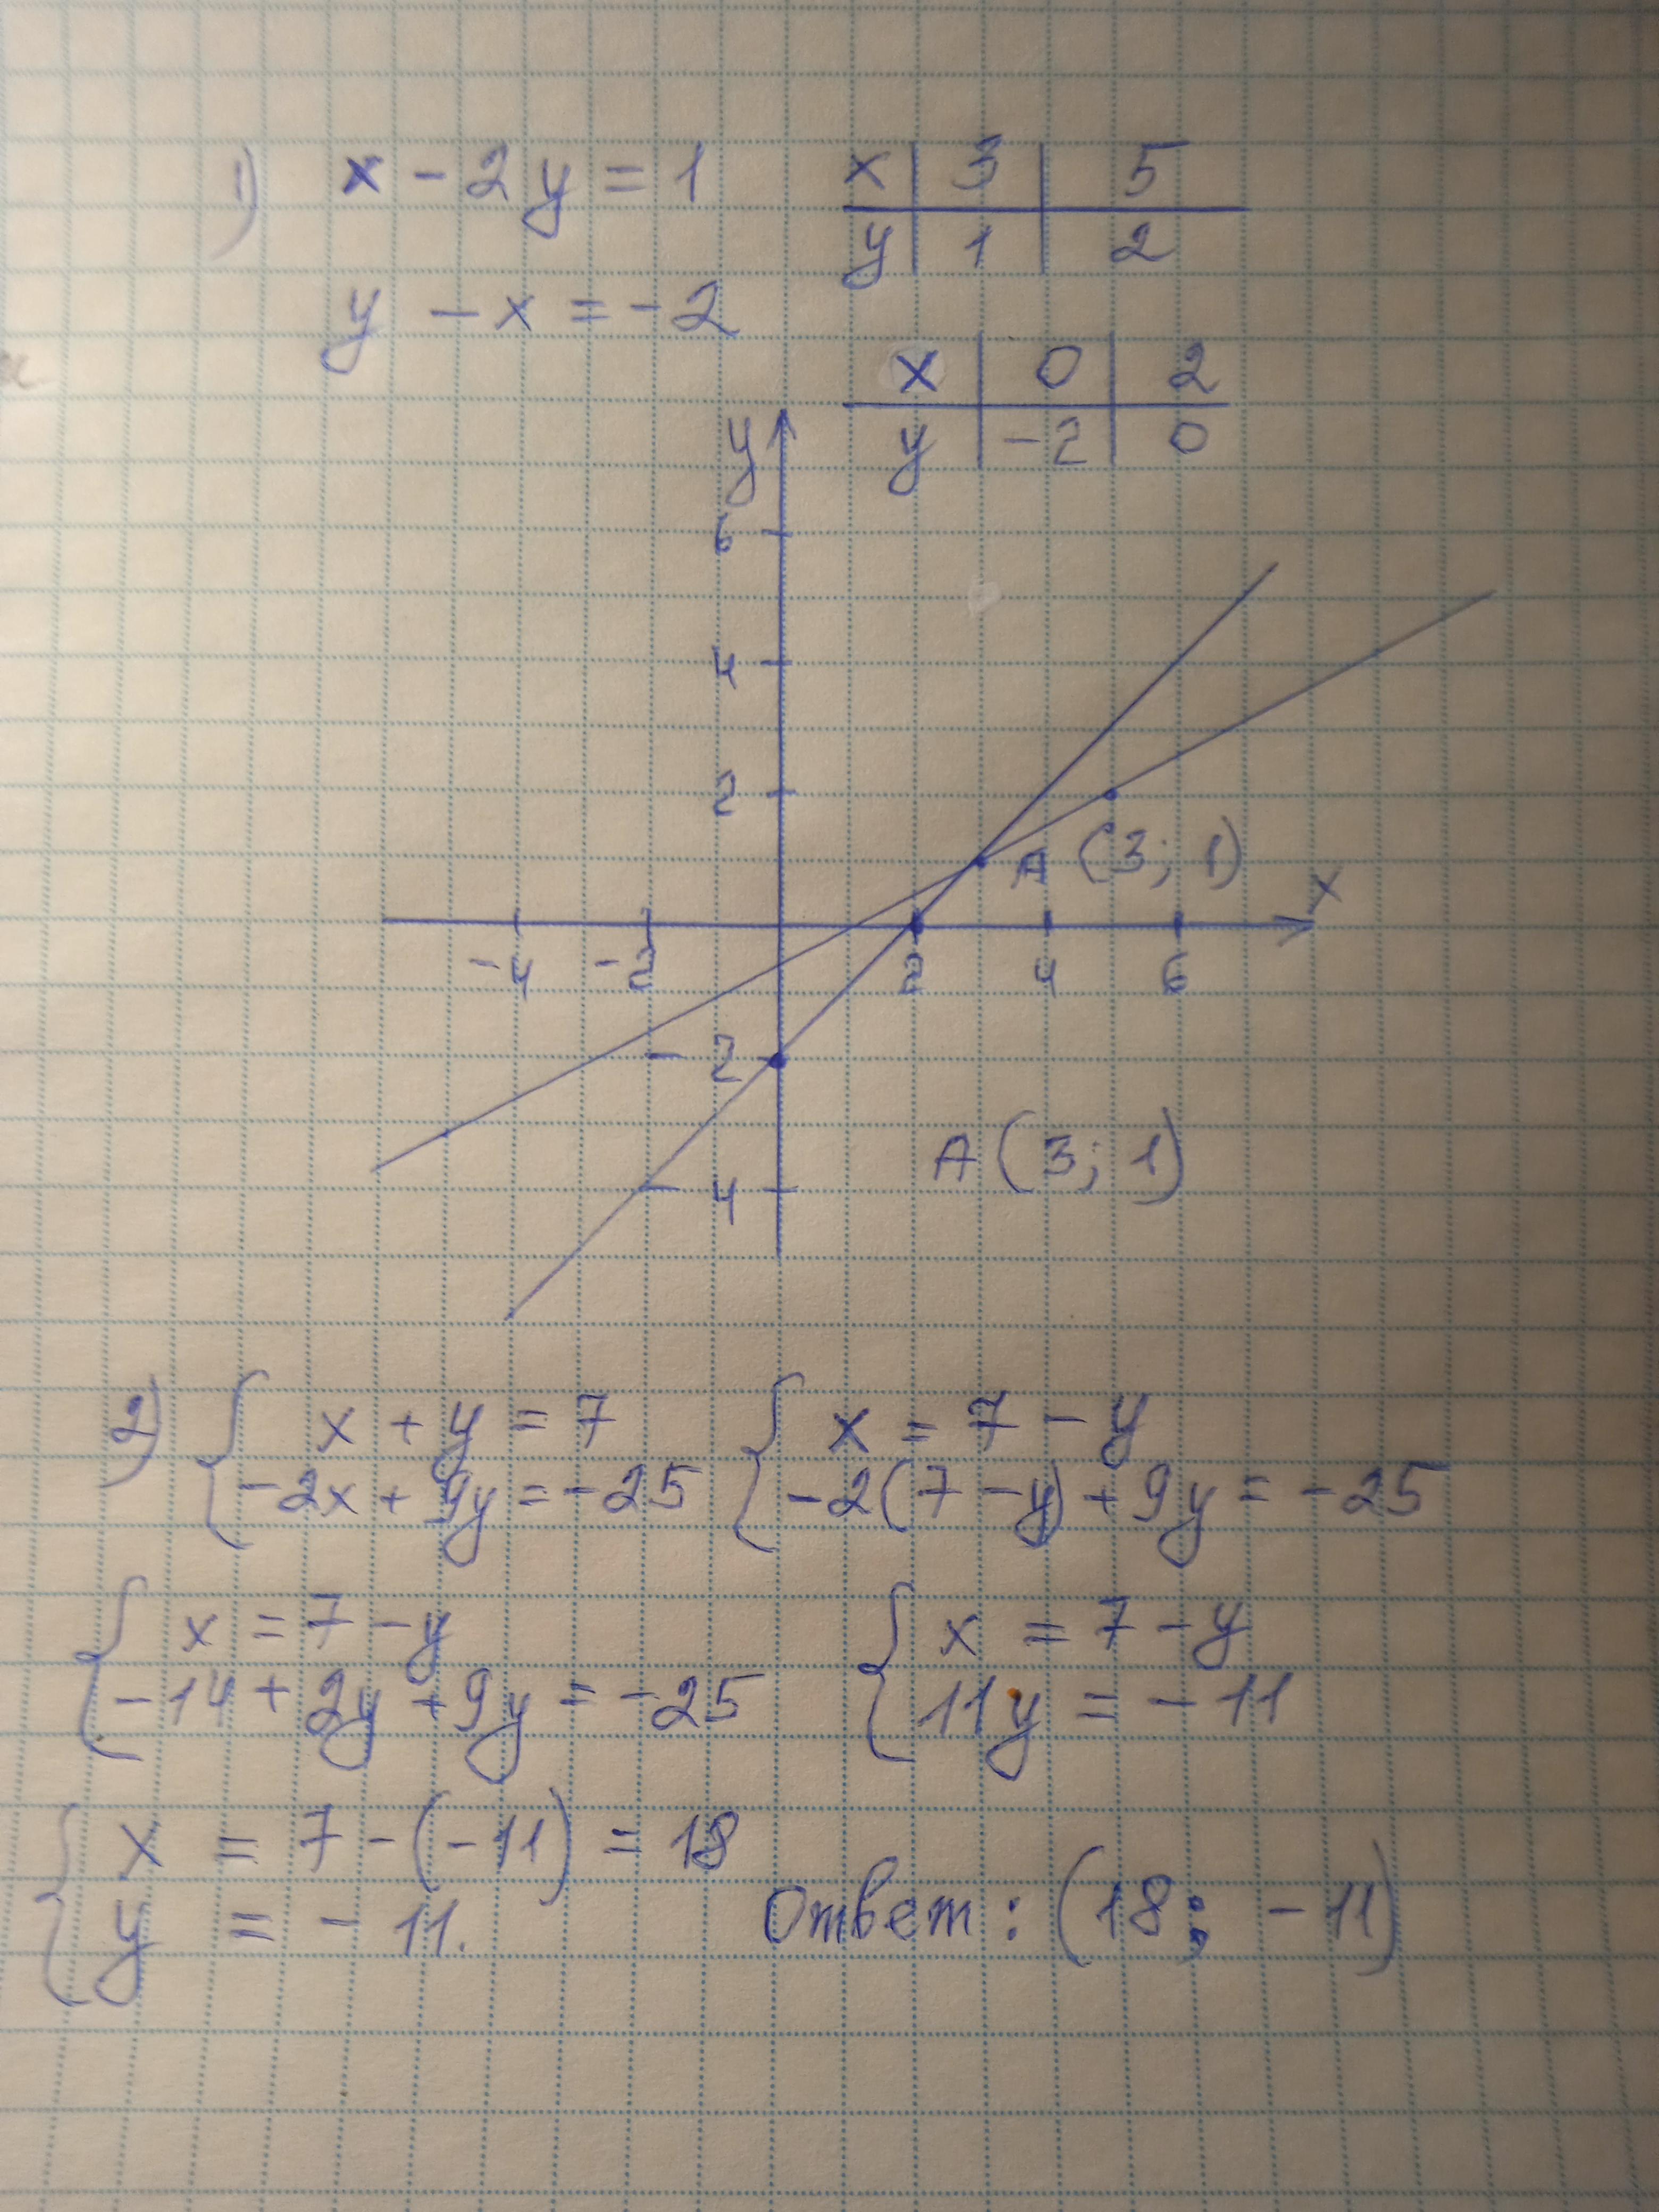 1) x - 2y = 1
x | 3 | 5
y | 1 | 2
y - x = -2
x | 0 | 2
y | -2 | 0
y
6
4
2
A (3; 1)
x
-4 -2 2 4 6
-2
-4
A (3; 1)
2) { x + y = 7 { x = 7 - y
-2x + 9y = -25 -2(7 - y) + 9y = -25
{ x = 7 - y { x = 7 - y
-14 + 2y + 9y = -25 11y = -11
{ x = 7 - (-11) = 18
y = -11. Ответ: (18; -11)